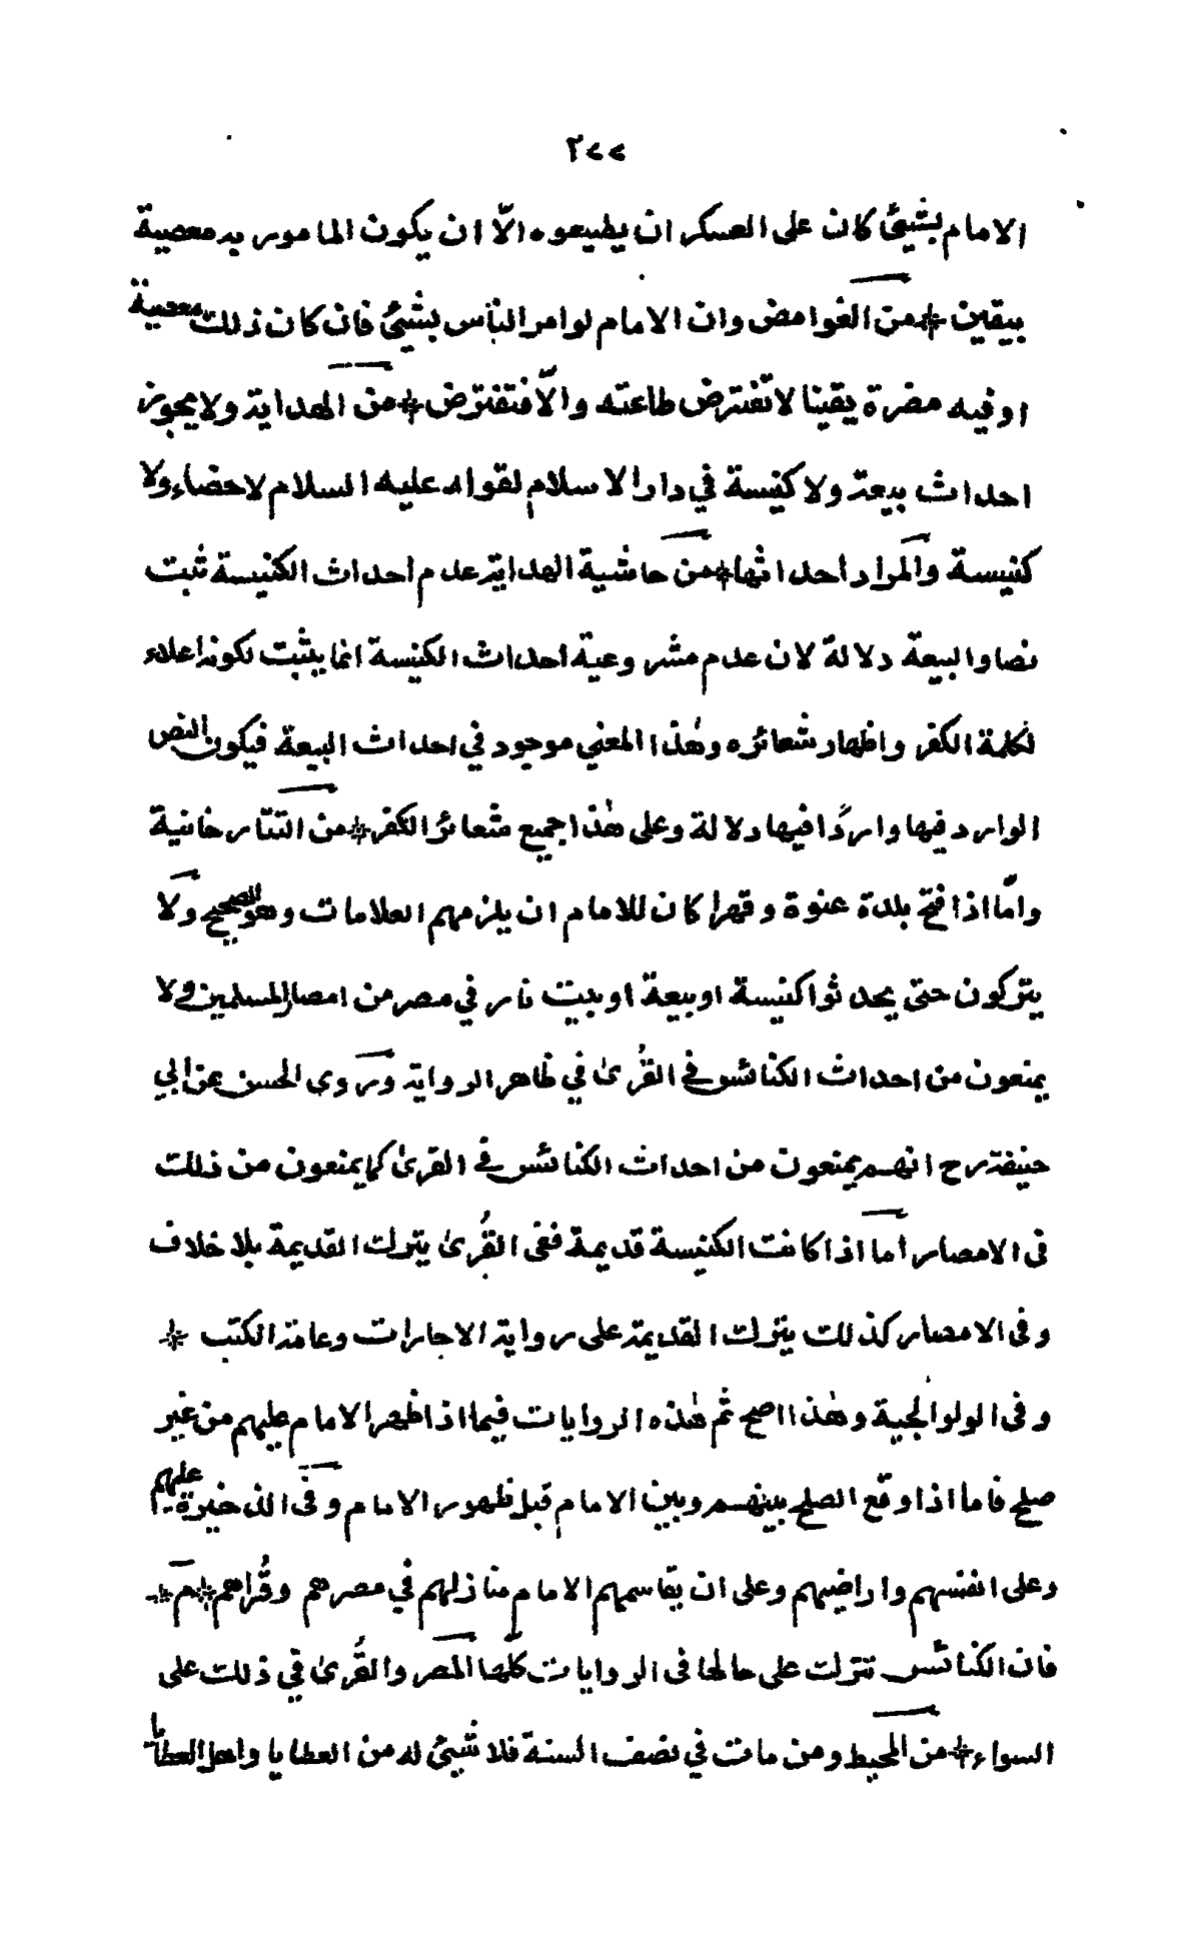 ٢٧٧
الامام بشيئ كان على العسكر ان يطيعوه الّا ان يكون المامور به معصية
بيقين * من الغوامض وان الامام لو امر الناس بشيئ فان كان ذلك معصية
او فيه مضرة يقينا لا تفترض طاعته والّا فتفترض * من الهداية ولا يجوز
احداث بيعة ولا كنيسة في دار الاسلام لقوله عليه السلام لا خصاء ولا
كنيسة والمراد احداثها * من حاشية الهداية عدم احداث الكنيسة ثبت
نصا والبيعة دلالة لان عدم مشروعية احداث الكنيسة انما يثبت لكونه اعلاء
لكلمة الكفر واظهار شعائره وهٰذا المعنى موجود في احداث البيعة فيكون النص
الوارد فيها واردًا فيها دلالة وعلى هٰذا جميع شعائر الكفر * من التتارخانية
وامّا اذا فتح بلدة عنوة وقهرا كان للامام ان يلزمهم العلامات وهو الصحيح ولا
يتركون حتى يحدثوا كنيسة او بيعة او بيت نار في مصر من امصار المسلمين ولا
يمنعون من احداث الكنائس في القُرىٰ في ظاهر الرواية وروى الحسن عن ابي
حنيفة رح انهم يمنعون من احداث الكنائس في القرىٰ كما يمنعون من ذلك
فى الامصار اما اذا كانت الكنيسة قديمة ففى القُرىٰ يترك القديمة بلا خلاف
وفى الامصار كذلك يترك القديمة على رواية الاجارات وعامة الكتب *
وفى الولوالجية وهٰذا اصح ثم هٰذه الروايات فيما اذا ظهر الامام عليهم من غير
صلح فاما اذا وقع الصلح بينهم وبين الامام قبل ظهور الامام وفى الذخيرة عليهم
وعلى انفسهم واراضيهم وعلى ان يقاسمهم الامام منازلهم في مصرهم وقُراهم * م *
فان الكنائس تترك على حالها فى الروايات كلّها المصر والقُرىٰ في ذلك على
السواء * من المحيط ومن مات في نصف السنة فلا شيئ له من العطايا واهل العطايا